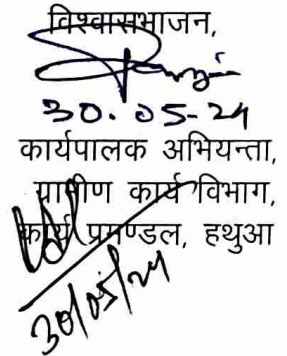 विश्वासभाजन,
30.05-24
कार्यपालक अभियन्ता,
ग्रामीण कार्य विभाग,
कार्य प्रमण्डल, हथुआ
30/05/24